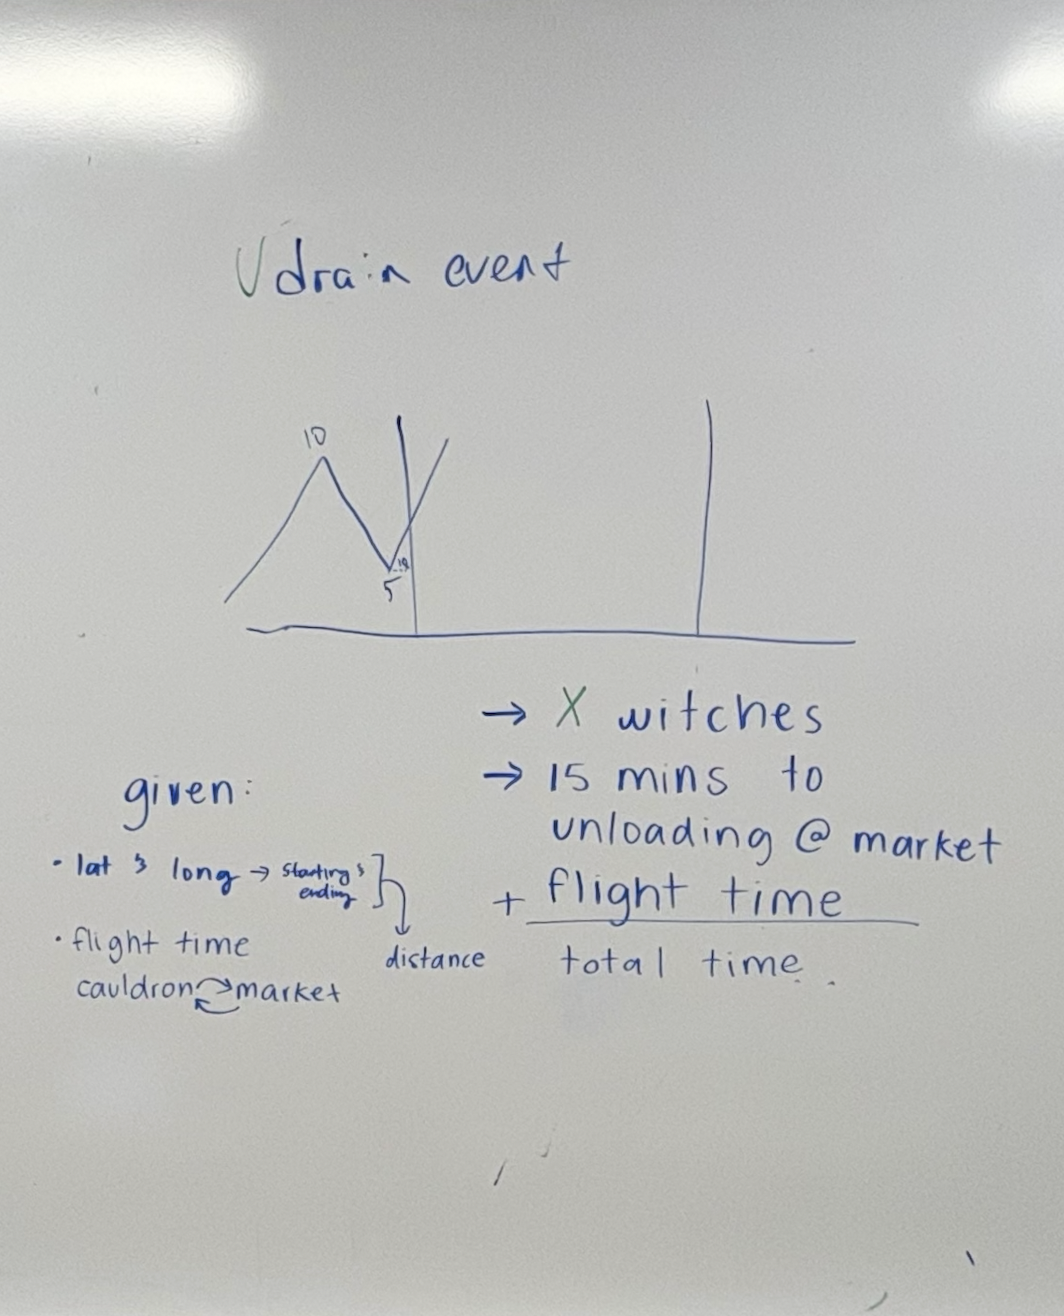 V drain event
10
5
→ X witches
→ 15 mins to
unloading @ market
+ flight time
total time.
given:
· lat & long → starting &
ending
distance
· flight time
cauldron market